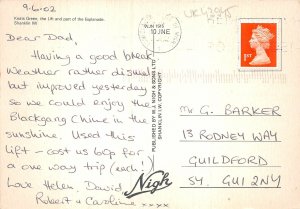 9-6-02
Keats Green, the Lift and part of the Esplanade.
Shanklin IW
Dear Dad,
Having a good break.
Weather rather dismal
but improved yesterday
so we could enjoy the
Blackgang Chine in the
sunshine. Used this
lift - cost us 60p for
a one way trip (each!)
Love Helen, David,
Robert & Caroline xxxx
PUBLISHED BY W. J. NIGH & SONS LTD
SHANKLIN I.W. COPYRIGHT
Nigh
10 JNE
1ST
Mr G. BARKER
13 RODNEY WAY
GUILDFORD
SY. GU1 2NY